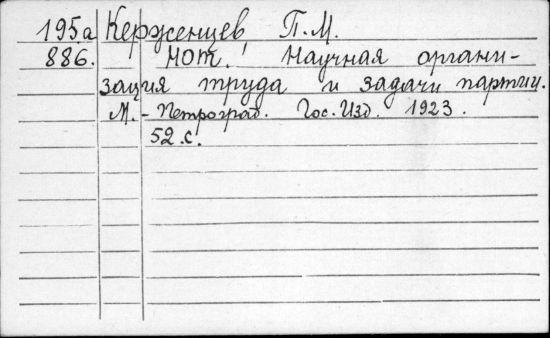 195а Керженцев П.М.
886. НОТ. Научная органи-
зация труда и задачи партии.
М.-Петроград. Гос.Изд. 1923.
52.с.